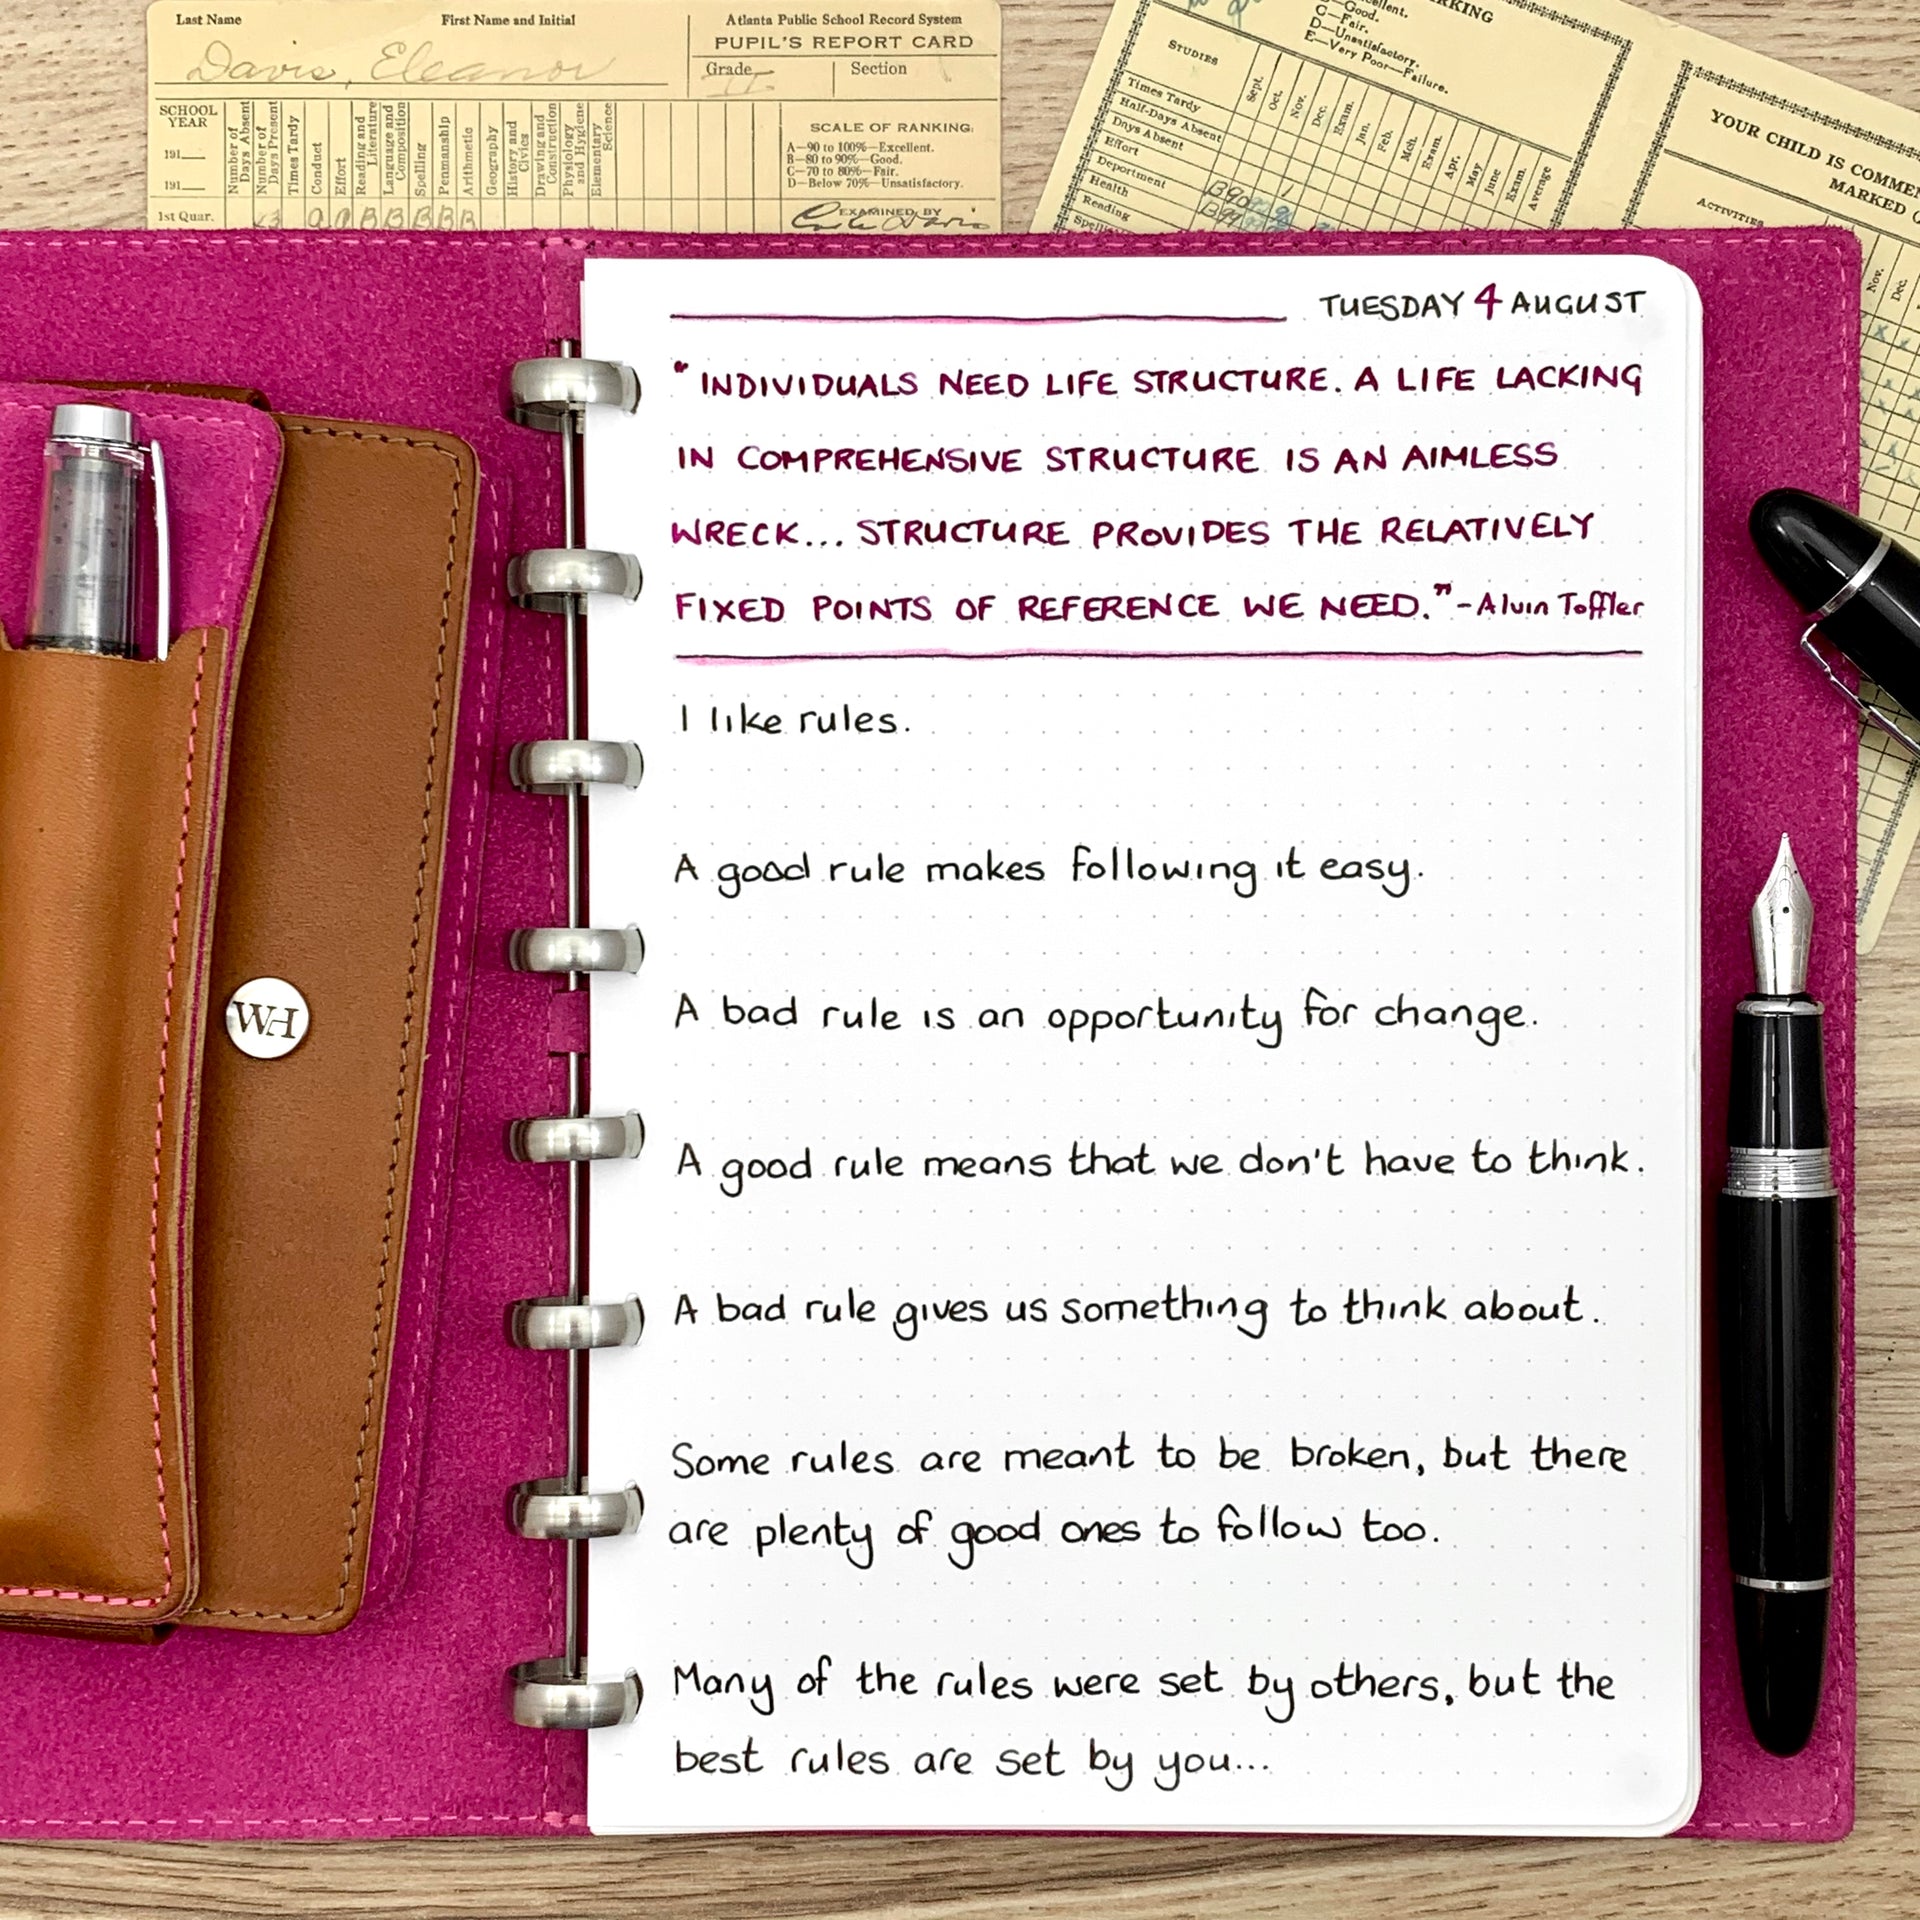 Last Name First Name and Initial
Davis, Eleanor
Atlanta Public School Record System
PUPIL'S REPORT CARD
Grade Section
SCHOOL
YEAR
191
191
Number of
Days Absent
Number of
Days Present
Times Tardy
Conduct
Effort
Reading and
Literature
Language and
Composition
Spelling
Penmanship
Arithmetic
Geography
History and
Civics
Drawing and
Construction
Physiology
and Hygiene
Elementary
Science
SCALE OF RANKING:
A—90 to 100%—Excellent.
B—80 to 90%—Good.
C—70 to 80%—Fair.
D—Below 70%—Unsatisfactory.
EXAMINED BY
1st Quar.
B B B B B
C—Fair.
D—Unsatisfactory.
E—Very Poor—Failure.
STUDIES
Sept.
Oct.
Nov.
Dec.
Exam.
Jan.
Feb.
Mch.
Exam.
Apr.
May
June
Exam.
Average
Times Tardy
Half-Days Absent
Days Absent
Effort
Deportment
Health
Reading
YOUR CHILD IS
MARKED
ACTIVITIES
Nov.
Dec.
TUESDAY 4 AUGUST
"INDIVIDUALS NEED LIFE STRUCTURE. A LIFE LACKING
IN COMPREHENSIVE STRUCTURE IS AN AIMLESS
WRECK... STRUCTURE PROVIDES THE RELATIVELY
FIXED POINTS OF REFERENCE WE NEED." - Alvin Toffler
I like rules.
A good rule makes following it easy.
A bad rule is an opportunity for change.
A good rule means that we don't have to think.
A bad rule gives us something to think about.
Some rules are meant to be broken, but there
are plenty of good ones to follow too.
Many of the rules were set by others, but the
best rules are set by you...
WH